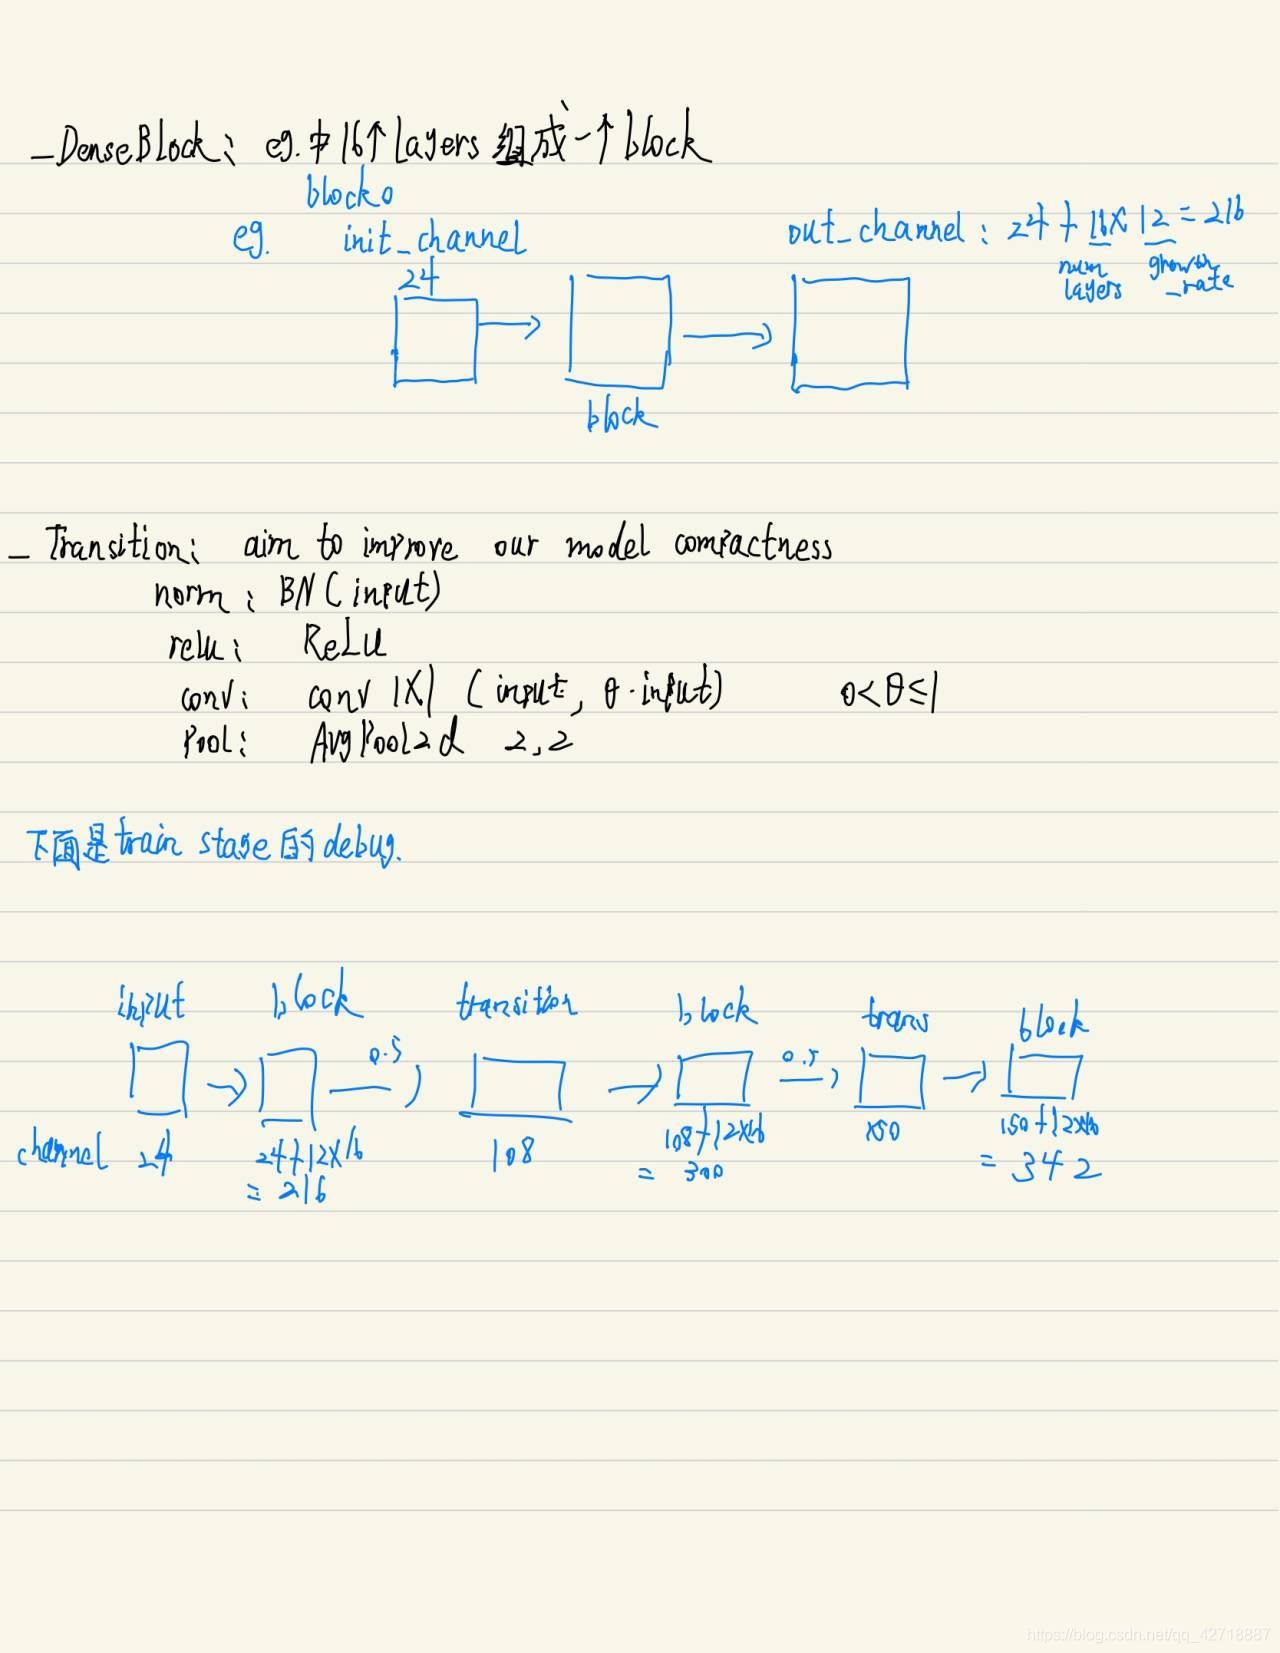 _DenseBlock: eg.中16个layers组成一个block
block0
eg. init_channel
out_channel: 24+16×12=216
num layers
growth _rate
24
block
_Transition: aim to improve our model compactness
norm: BN(input)
relu: ReLU
conv: conv 1×1 (input, θ·input) 0<θ≤1
Pool: AvgPool2d 2,2
下面是train stage的debug.
input block transition block trans block
0.5 0.5
channel 24 24+12×16 108 108+12×16 150 150+12×16
=216 =300 =342
https://blog.csdn.net/qq_42718887